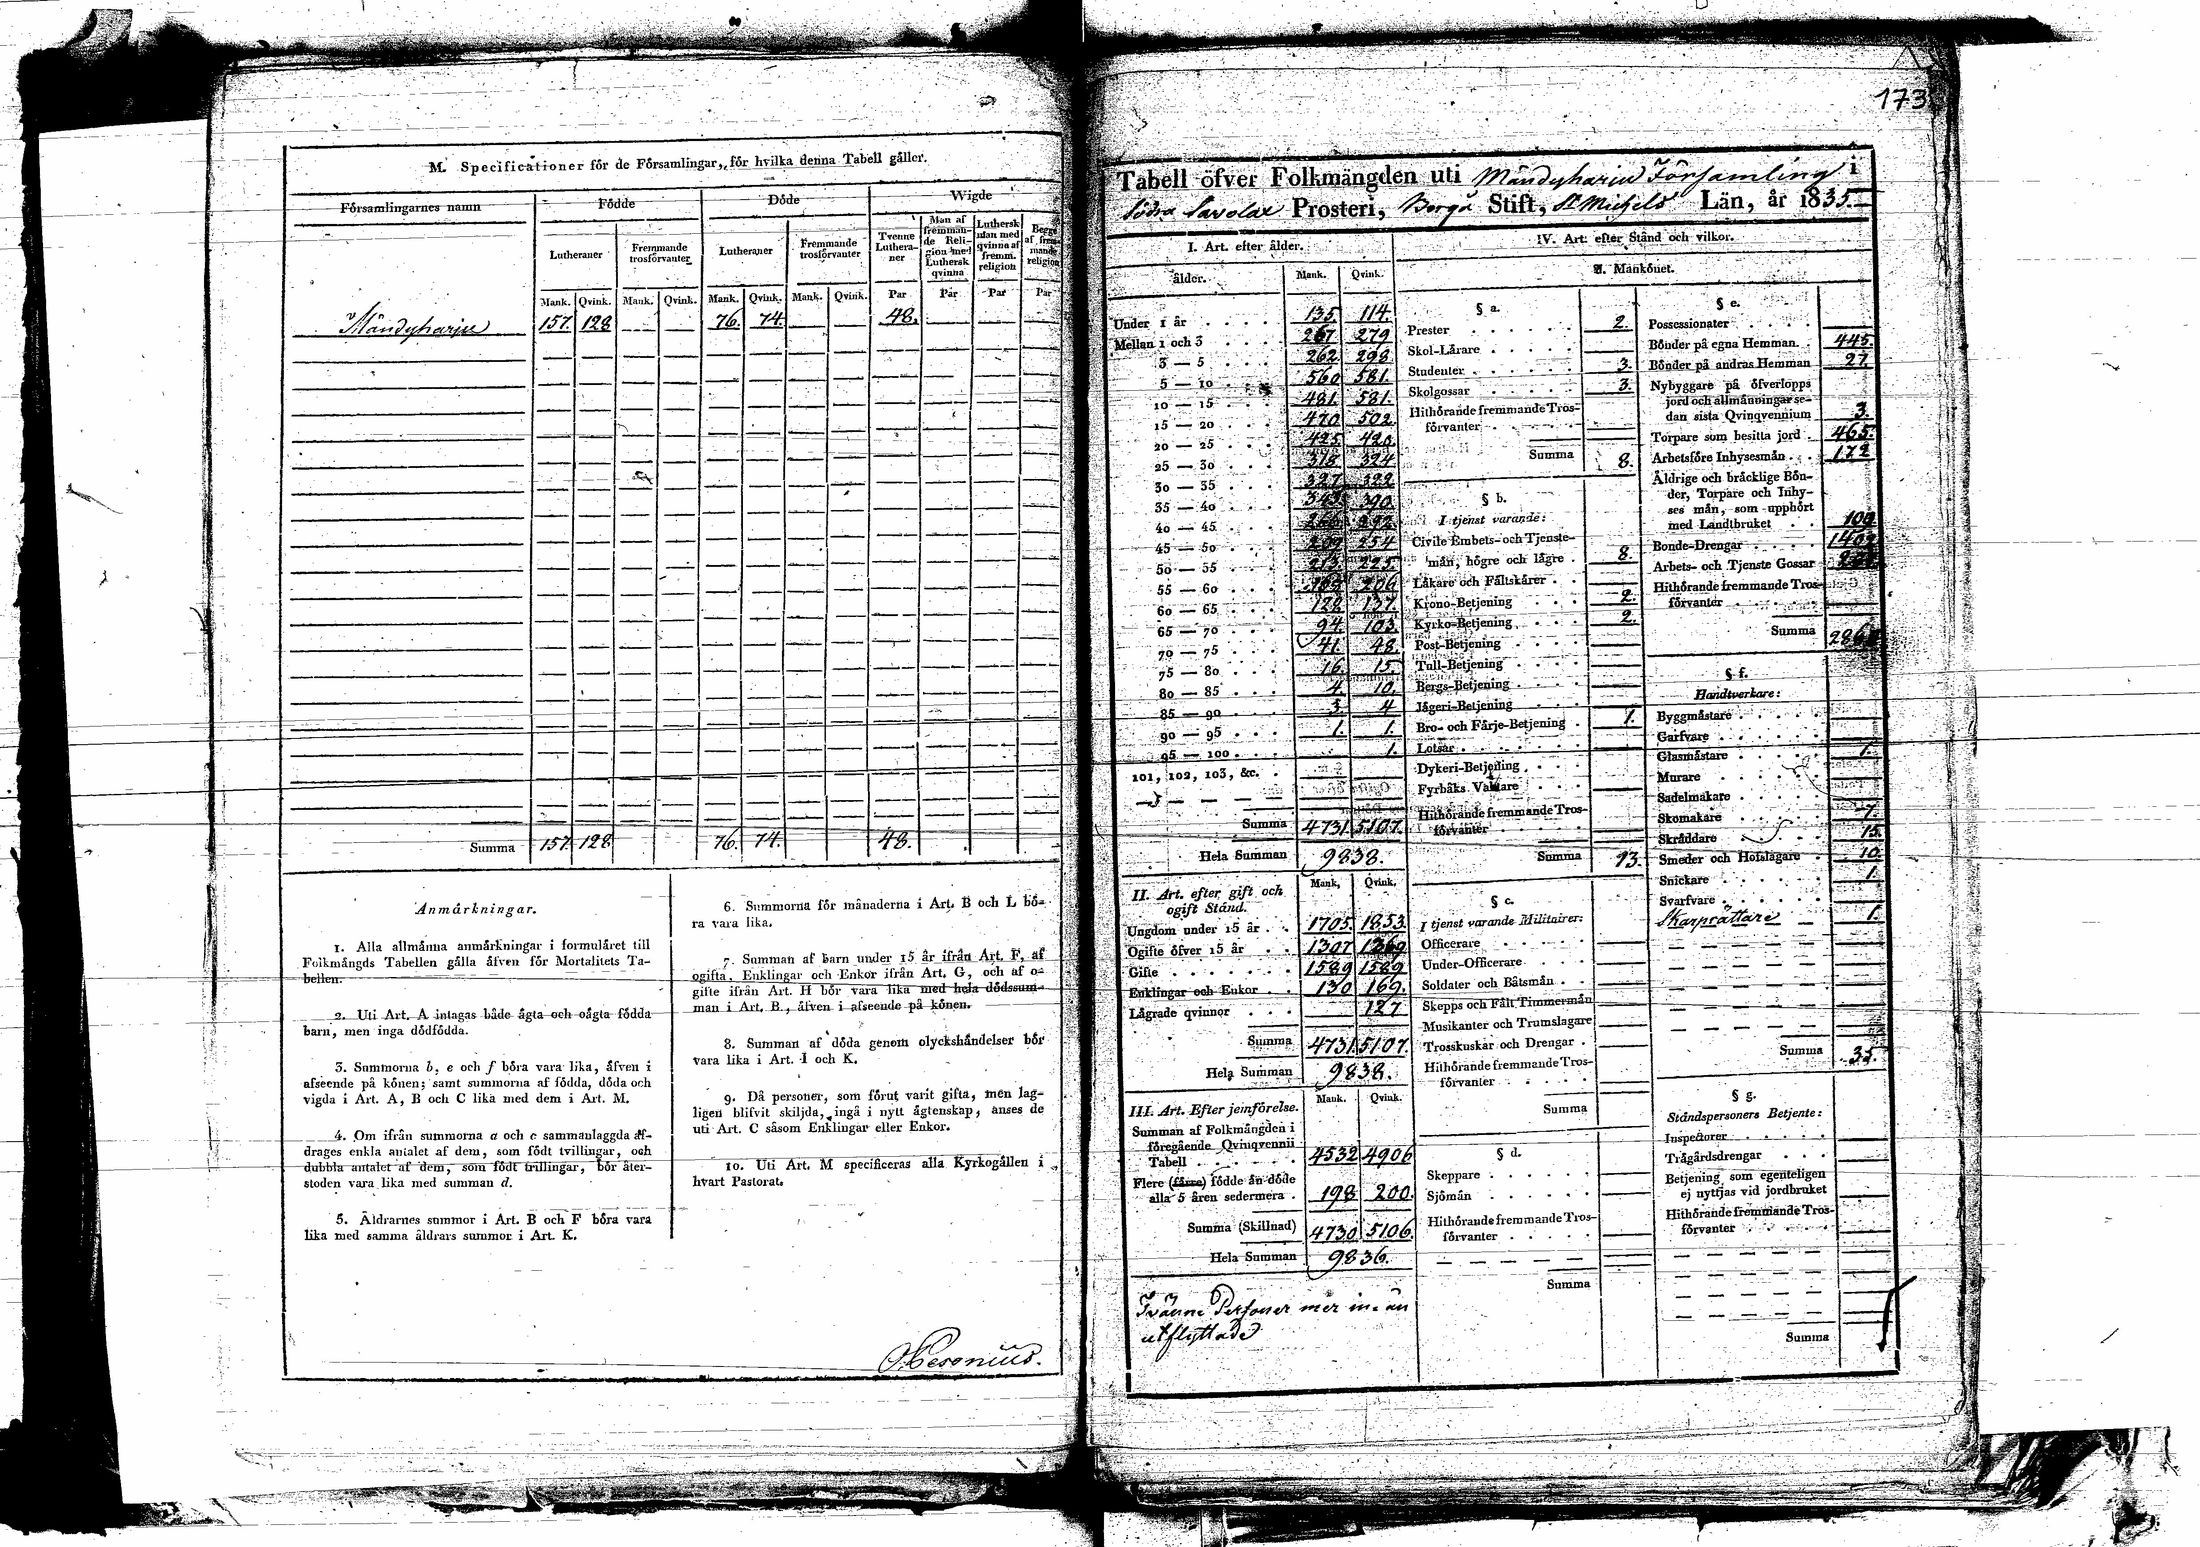 M. Specificationer för de Församlingar, för hvilka denna Tabell gäller.
Församlingarnes namn
Födde
Döde
Wigde
Lutheraner
Fremmande trosförvanter
Lutheraner
Fremmande trosförvanter
Tvenne Lutheraner
Man af fremmande Religion med Luthersk qvinna
Luthersk man med qvinna af fremm. religion
Begge af fremmande religion
Mank. Qvink. Mank. Qvink. Mank. Qvink. Mank. Qvink. Par Par Par Par
Mändyharju 157. 128 76. 74. 48.
Summa 157. 128 76. 74. 48.
Anmärkningar.
1. Alla allmänna anmärkningar i formuläret till
Folkmängds Tabellen gälla äfven för Mortalitets Ta-
bellen.
2. Uti Art. A intagas både ägta och oägta födda
barn, men inga dödfödda.
3. Summorna b, e och f böra vara lika, äfven i
afseende på könen; samt summorna af födda, döda och
vigda i Art. A, B och C lika med dem i Art. M.
4. Om ifrån summorna a och c sammanlaggda af-
drages enkla antalet af dem, som födt tvillingar, och
dubbla antalet af dem, som födt trillingar, bör åter-
stoden vara lika med summan d.
5. Äldrarnes summor i Art. B och F böra vara
lika med samma äldrars summor i Art. K.
6. Summorna för månaderna i Art. B och L bö-
ra vara lika.
7. Summan af barn under 15 år ifrån Art. F, af
ogifta, Enklingar och Enkor ifrån Art. G, och af o-
gifte ifrån Art. H bör vara lika med hela dödssum-
man i Art. B., äfven i afseende på könen.
8. Summan af döda genom olyckshändelser bör
vara lika i Art. I och K.
9. Då personer, som förut varit gifta, men lag-
ligen blifvit skiljda, ingå i nytt ägtenskap, anses de
uti Art. C såsom Enklingar eller Enkor.
10. Uti Art. M specificeras alla Kyrkogällen i
hvart Pastorat.
173
Tabell öfver Folkmängden uti Mändyharju Församling i
Södra Savolax Prosteri, Borgå Stift, St Michels Län, år 1835.
I. Art. efter ålder.
ålder. Mank. Qvink.
Under 1 år 135. 114.
Mellan 1 och 3 267 279
3 — 5 262 298
5 — 10 560 581.
10 — 15 481. 581.
15 — 20 470 502
20 — 25 425. 420.
25 — 30 318 324
30 — 35 327 322
35 — 40 343 390
40 — 45 292
45 — 50 254
50 — 55 213 225
55 — 60 206
60 — 65 128 137.
65 — 70 94. 103.
70 — 75 41. 48.
75 — 80 16. 15.
80 — 85 4. 10.
85 — 90 3. 4
90 — 95 1. 1.
95 — 100 1.
101, 102, 103, &c.
Summa 4731. 5107.
Hela Summan 9838.
II. Art. efter gift och
ogift Stånd. Mank. Qvink.
Ungdom under 15 år 1705. 1853.
Ogifte öfver 15 år 1307 1369
Gifte 1589 1589
Enklingar och Enkor 130 169.
Lägrade qvinnor 127
Summa 4731. 5107.
Hela Summan 9838.
III. Art. Efter jemförelse. Mank. Qvink.
Summan af Folkmängden i
föregående Qvinqvennii
Tabell 4532 4906
Flere (färre) födde än döde
alla 5 åren sedermera 198 200.
Summa (Skillnad) 4730 5106.
Hela Summan 9836.
Tvänne Personer mer in- än
utflyttade
IV. Art. efter Stånd och vilkor.
Mankönet.
§ a.
Prester 2.
Skol-Lärare
Studenter 3.
Skolgossar 3.
Hithörande fremmande Tros-
förvanter
Summa 8.
§ b.
I tjenst varande:
Civile Embets- och Tjenste-
män, högre och lägre 8.
Läkare och Fältskärer
Krono-Betjening 2.
Kyrko-Betjening 2.
Post-Betjening
Tull-Betjening
Bergs-Betjening
Jägeri-Betjening
Bro- och Färje-Betjening 1.
Lotsar
Dykeri-Betjening
Fyrbåks Vaktare
Hithörande fremmande Tros-
förvanter
Summa 13.
§ c.
I tjenst varande Militairer:
Officerare
Under-Officerare
Soldater och Båtsmän
Skepps och Fält Timmermän
Musikanter och Trumslagare
Trosskuskar och Drengar
Hithörande fremmande Tros-
förvanter
Summa
§ d.
Skeppare
Sjömän
Hithörande fremmande Tros-
förvanter
Summa
§ e.
Possessionater
Bönder på egna Hemman 445.
Bönder på andras Hemman 27.
Nybyggare på öfverlopps
jord och allmänningar se-
dan sista Qvinqvennium 3.
Torpare som besitta jord 465.
Arbetsföre Inhysesmän 172
Äldrige och bräcklige Bön-
der, Torpare och Inhy-
ses män, som upphört
med Landtbruket 100
Bonde-Drengar
Arbets- och Tjenste Gossar
Hithörande fremmande Tros-
förvanter
Summa
§ f.
Handtverkare:
Byggmästare
Garfvare
Glasmästare 1.
Murare
Sadelmakare
Skomakare 7.
Skräddare 15.
Smeder och Hofslagare 10.
Snickare 1.
Svarfvare
Skarprättare 1.
Summa 35.
§ g.
Ståndspersoners Betjente:
Inspectorer
Trägårdsdrengar
Betjening som egenteligen
ej nyttjas vid jordbruket
Hithörande fremmande Tros-
förvanter
Summa